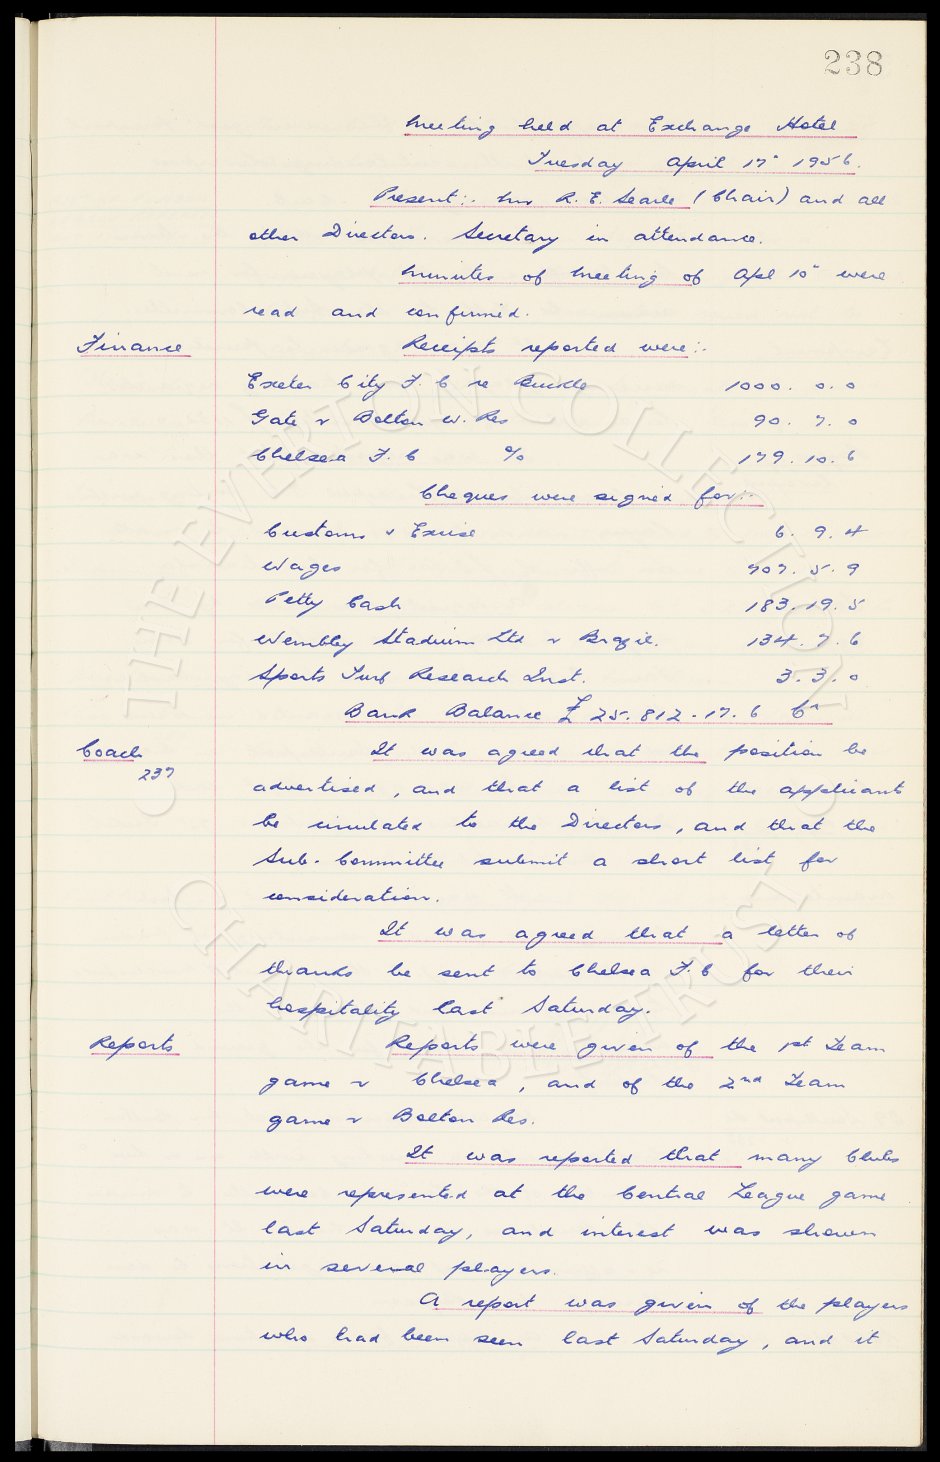 238
Meeting held at Exchange Hotel
Tuesday April 17" 1956.
Present:- Mr R. E. Searle (Chair) and all
other Directors. Secretary in attendance.
Minutes of Meeting of Apl 10" were
read and confirmed.
Finance Receipts reported were:-
Exeter City F. C re Buckle 1000. 0. 0
Gate v Bolton W. Res 90. 7. 0
Chelsea F. C % 179. 10. 6
Cheques were signed for:-
Customs & Excise 6. 9. 4
Wages 707. 5. 9
Petty Cash 183. 19. 5
Wembley Stadium Ltd v Brazil. 134. 7. 6
Sports Turf Research Inst. 3. 3. 0
Bank Balance £ 25. 812. 17. 6 Cr
Coach It was agreed that the position be
237
advertised, and that a list of the applicants
be circulated to the Directors, and that the
Sub-Committee submit a short list for
consideration.
It was agreed that a letter of
thanks be sent to Chelsea F. C for their
hospitality last Saturday.
Reports Reports were given of the 1st Team
game v Chelsea, and of the 2nd Team
game v Bolton Res.
It was reported that many Clubs
were represented at the Central League game
last Saturday, and interest was shown
in several players.
A report was given of the players
who had been seen last Saturday, and it
THE EVERTON COLLECTION
CHARITABLE TRUST